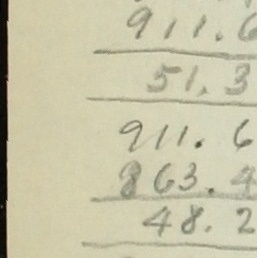 911.6
51.3
911.6
863.4
48.2